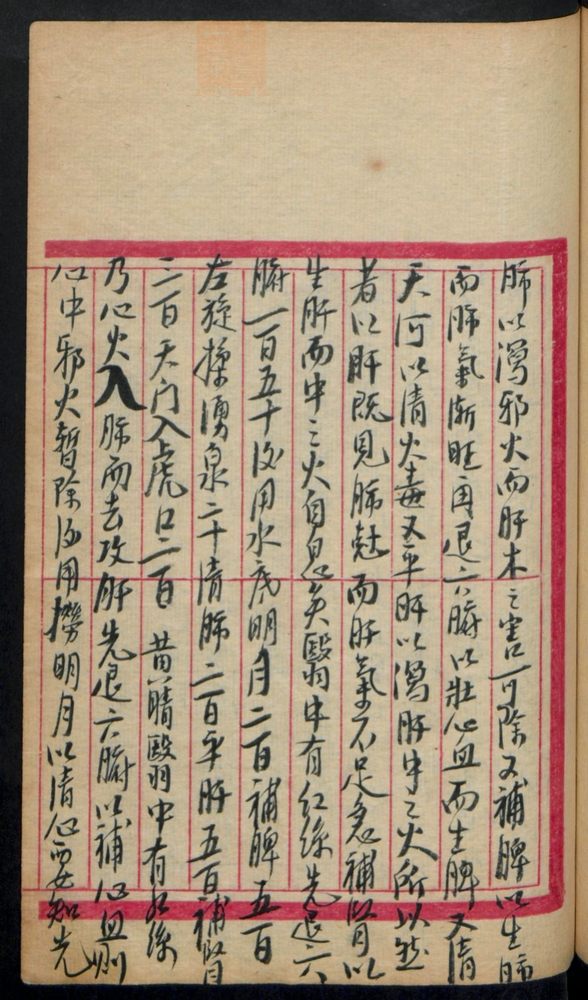 肺以瀉邪火而肝木之害可除又補脾以生肺
而肺氣漸旺再退六腑以壯心血而生脾又清
天河以清火毒又平肝以瀉肝中之火所以然
者以肝既見肺尅而肝氣不足急補腎以
生肝而中之火自息矣翳中有紅絲先退六
腑一百五十後用水底明月二百補脾五百
左旋揉湧泉二十清肺二百平肝五百補腎
三百天门入虎口二百 黄睛翳中有紅絲
乃心火入肺而去攻肝先退六腑以補心血則
心中邪火暫除後用撈明月以清心要知先